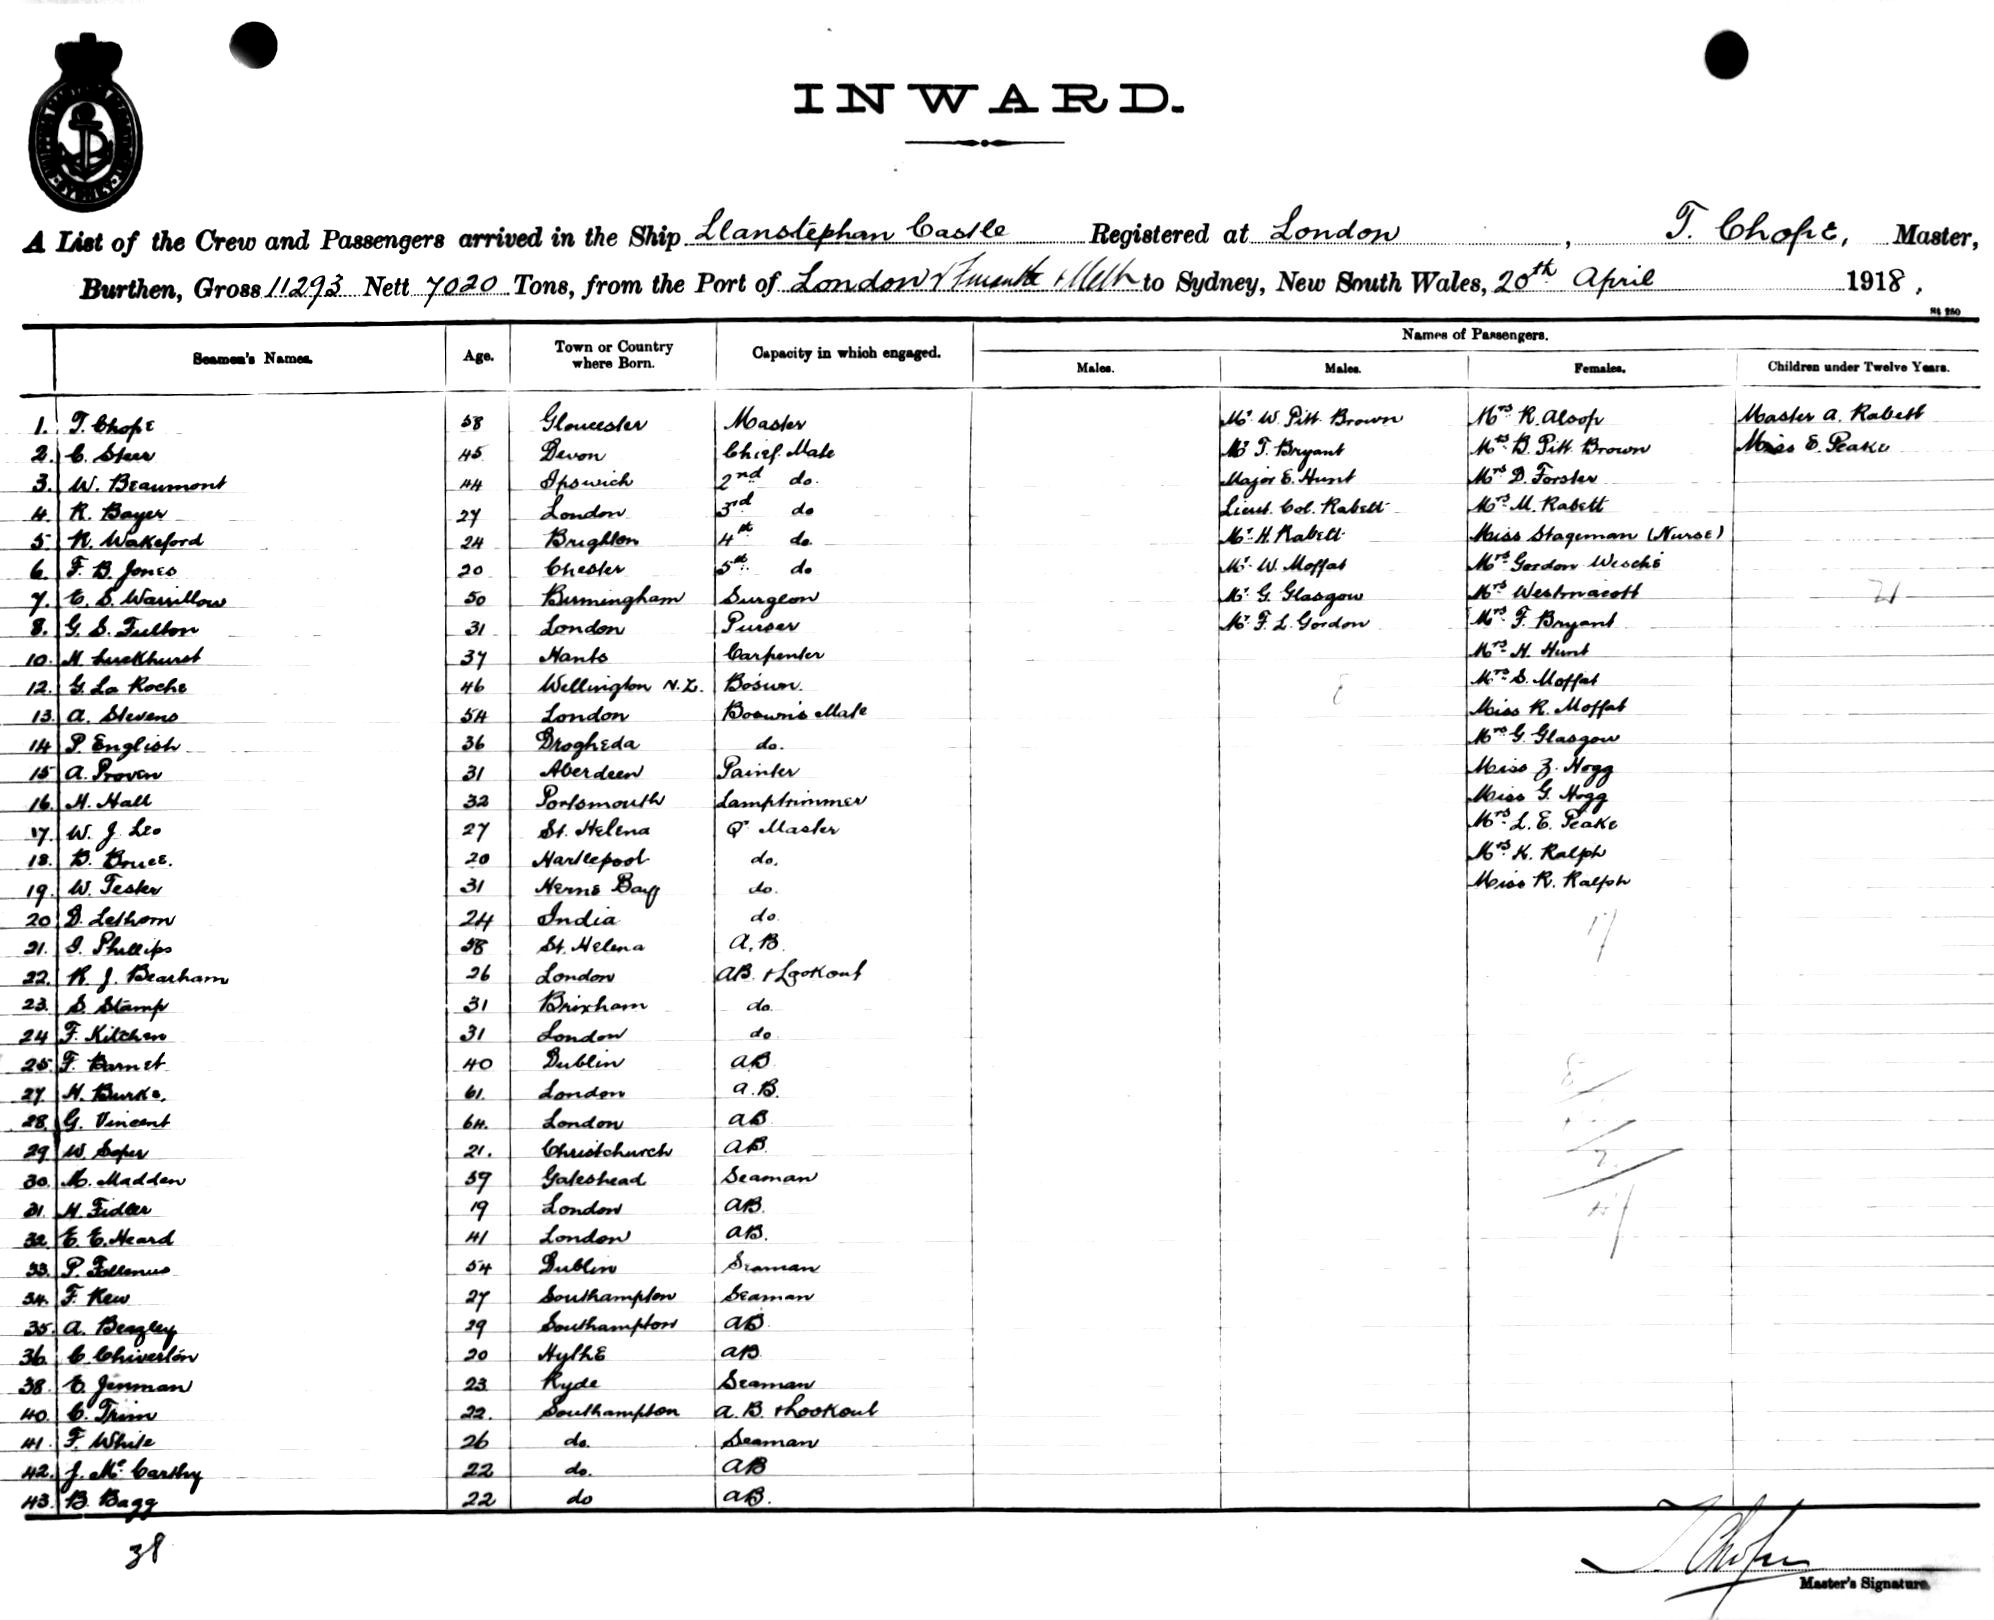 INWARD.
A List of the Crew and Passengers arrived in the Ship Llanstephan Castle Registered at London, T. Chope, Master,
Burthen, Gross 11293 Nett 7020 Tons, from the Port of London to Sydney, New South Wales, 20th April 1918,
Names of Passengers.
Seamen's Names. Age. Town or Country where Born. Capacity in which engaged. Males. Males. Females. Children under Twelve Years.
1. T. Chope 58 Gloucester Master Mr. W. Pitt Brown Mrs. R. Alsop Master A. Rabett
2. C. Steer 45 Devon Chief Mate Mr. T. Bryant Mrs. B. Pitt Brown Miss E. Peake
3. W. Beaumont 44 Ipswich 2nd do. Major E. Hunt Mrs. D. Forster
4. R. Bayer 27 London 3rd do Lieut. Col. Rabett Mrs. M. Rabett
5. R. Wakeford 24 Brighton 4th do. Mr. H. Rabett Miss Stageman (Nurse)
6. F. B. Jones 20 Chester 5th do Mr. W. Moffat Mrs. Gordon Wesché
7. E. S. Warrillow 50 Birmingham Surgeon Mr. G. Glasgow Mrs. Westmacott
8. G. S. Fulton 31 London Purser Mr. F. L. Gordon Mrs. F. Bryant
10. H. Luckhurst 37 Hants Carpenter Mrs. H. Hunt
12. G. La Roche 46 Wellington N.Z. Bosun. Mrs. S. Moffat
13. A. Stevens 54 London Bosun's Mate Miss R. Moffat
14 P. English 36 Drogheda do. Mrs. G. Glasgow
15 A. Proven 31 Aberdeen Painter Miss Z. Hogg
16. H. Hall 32 Portsmouth Lamptrimmer Miss G. Hogg
17. W. J. Leo 27 St. Helena Qr Master Mrs. L. E. Peake
18. B. Bouce. 20 Hartlepool do. Mrs. K. Ralph
19. W. Tester 31 Herne Bay do. Miss R. Ralph
20 D. Lethorn 24 India do. 17
21. J. Phillips 58 St. Helena A.B.
22. R. J. Bearham 26 London AB. & Lookout
23. S. Stamp 31 Brixham do.
24 F. Kitchen 31 London do
25. F. Barnet 40 Dublin AB
27. H. Burke. 61. London A.B.
28. G. Vincent 64. London AB
29 W Soper 21. Christchurch AB.
30. M. Madden 59 Gateshead Seaman
31. H. Fidler 19 London AB.
32. E. E. Heard 41 London AB.
33. P. 54 Dublin Seaman
34. F. Kew 27 Southampton Seaman
35. A. Beazley 29 Southampton AB
36. C. Chiverton 20 Hythe AB
38. E. Jenman 23 Ryde Seaman
40. C. Trim 22. Southampton A.B. & Lookout
41. F. White 26 do. Seaman
42. J. Mc.Carthy 22 do. AB
43. B. Bagg 22 do AB.
38
T Chope
Master's Signature.